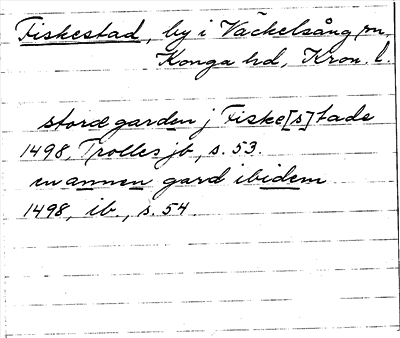 Fiskestad, by i Väckelsång sn,
Konga hd, Kron. l.
store garden j Fiske[s]tade
1498, Trolles jb, s. 53.
en annen gard ibidem
1498, ib., s. 54.